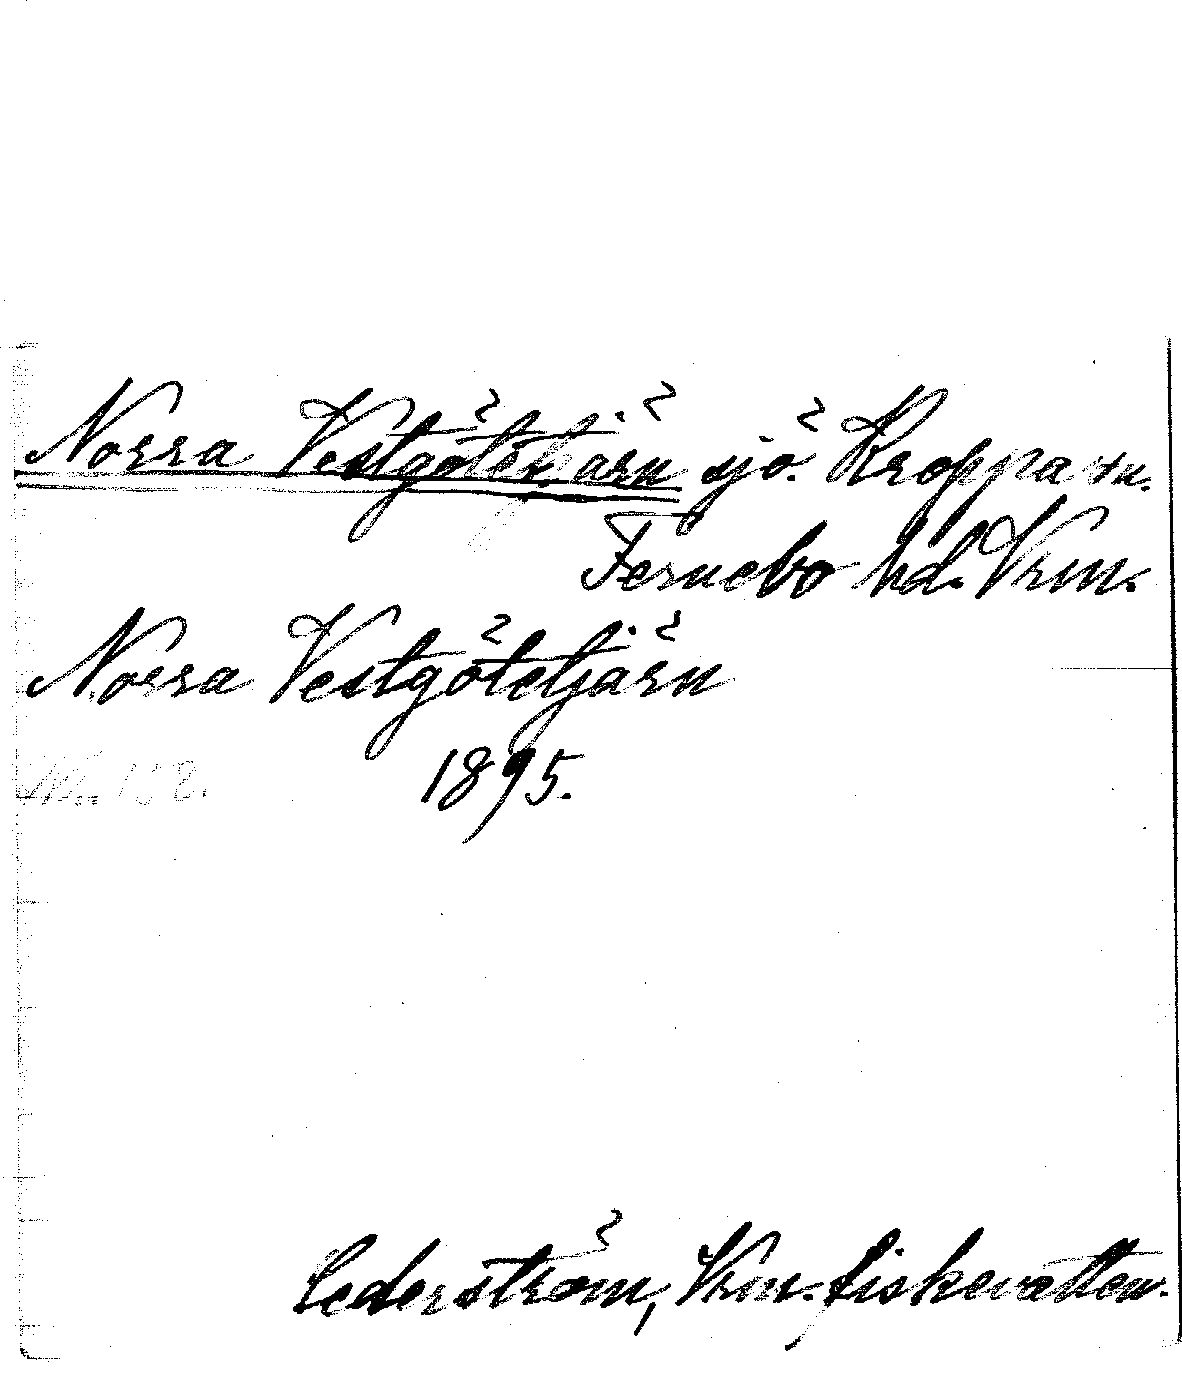 Norra Vestgötetjärn sjö. Kroppa sn.
Fernebo hd. Vrm.
Norra Vestgötetjärn
1895.
Cederström, Vrm. fiskevatten.